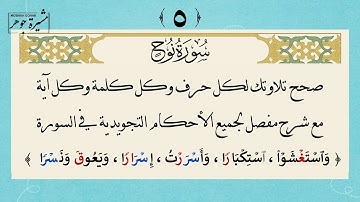 مشيرة جوهر
﴿ ٥ ﴾
سُورَةُ نُوحٍ
صحح تلاوتك لكل حرف وكل كلمة وكل آية
مع شرح مفصل لجميع الأحكام التجويدية في السورة
﴿ وَٱسْتَغْشَوْا۟ ، ٱسْتِكْبَارًا ، وَأَسْرَرْتُ ، إِسْرَارًا ، وَيَعُوقَ وَنَسْرًا ﴾